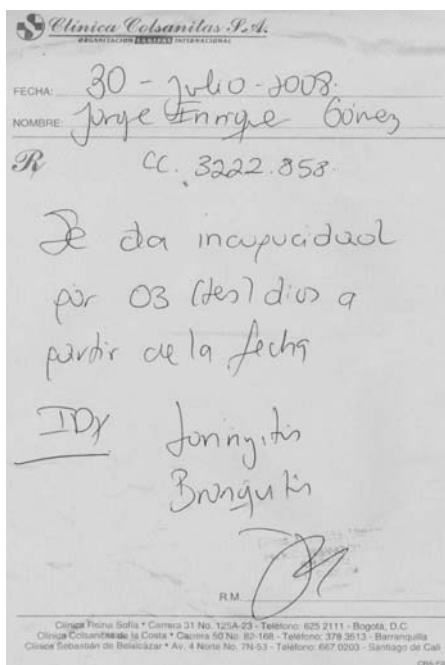 Clínica Colsanitas S.A.
ORGANIZACION SANITAS INTERNACIONAL
FECHA: 30 - Julio - 2008.
NOMBRE: Jorge Enrique Gómez
R CC. 3222.858.
Se da incapacidad
por 03 (tres) dias a
partir de la fecha
IDx Faringitis
Bronquitis
R.M.
Clínica Reina Sofía * Carrera 31 No. 125A-23 - Teléfono: 625 2111 - Bogotá, D.C.
Clínica Colsanitas de la Costa * Carrera 50 No. 82-168 - Teléfono: 378 3513 - Barranquilla
Clínica Sebastián de Belalcázar * Av. 4 Norte No. 7N-53 - Teléfono: 667 0203 - Santiago de Cali